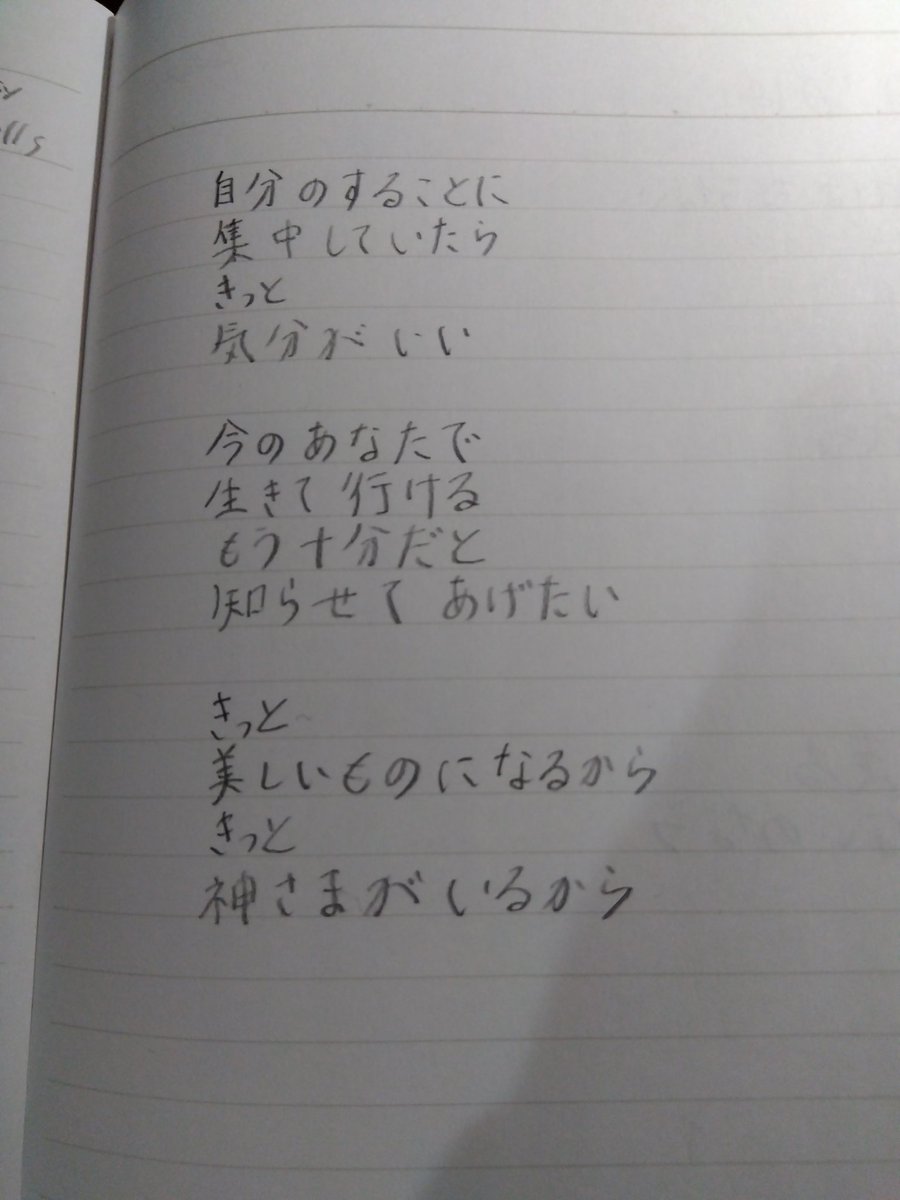 自分のすることに
集中していたら
きっと
気分がいい
今のあなたで
生きて行ける
もう十分だと
知らせてあげたい
きっと
美しいものになるから
きっと
神さまがいるから